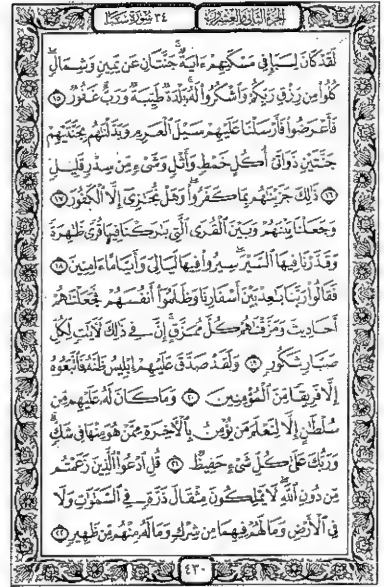 الجزء الثاني والعشرون
٣٤ سورة سبأ
لَقَدْ كَانَ لِسَبَإٍ فِي مَسْكَنِهِمْ ءَايَةٌ ۖ جَنَّتَانِ عَن يَمِينٍ وَشِمَالٍ ۖ
كُلُوا۟ مِن رِّزْقِ رَبِّكُمْ وَٱشْكُرُوا۟ لَهُۥ ۚ بَلْدَةٌ طَيِّبَةٌ وَرَبٌّ غَفُورٌ ١٥
فَأَعْرَضُوا۟ فَأَرْسَلْنَا عَلَيْهِمْ سَيْلَ ٱلْعَرِمِ وَبَدَّلْنَٰهُم بِجَنَّتَيْهِمْ
جَنَّتَيْنِ ذَوَاتَىْ أُكُلٍ خَمْطٍ وَأَثْلٍ وَشَىْءٍ مِّن سِدْرٍ قَلِيلٍ
١٦ ذَٰلِكَ جَزَيْنَٰهُم بِمَا كَفَرُوا۟ ۖ وَهَلْ نُجَٰزِىٓ إِلَّا ٱلْكَفُورَ ١٧
وَجَعَلْنَا بَيْنَهُمْ وَبَيْنَ ٱلْقُرَى ٱلَّتِى بَٰرَكْنَا فِيهَا قُرًى ظَٰهِرَةً
وَقَدَّرْنَا فِيهَا ٱلسَّيْرَ ۖ سِيرُوا۟ فِيهَا لَيَالِىَ وَأَيَّامًا ءَامِنِينَ ١٨
فَقَالُوا۟ رَبَّنَا بَٰعِدْ بَيْنَ أَسْفَارِنَا وَظَلَمُوٓا۟ أَنفُسَهُمْ فَجَعَلْنَٰهُمْ
أَحَادِيثَ وَمَزَّقْنَٰهُمْ كُلَّ مُمَزَّقٍ ۚ إِنَّ فِى ذَٰلِكَ لَءَايَٰتٍ لِّكُلِّ
صَبَّارٍ شَكُورٍ ١٩ وَلَقَدْ صَدَّقَ عَلَيْهِمْ إِبْلِيسُ ظَنَّهُۥ فَٱتَّبَعُوهُ
إِلَّا فَرِيقًا مِّنَ ٱلْمُؤْمِنِينَ ٢٠ وَمَا كَانَ لَهُۥ عَلَيْهِم مِّن
سُلْطَٰنٍ إِلَّا لِنَعْلَمَ مَن يُؤْمِنُ بِٱلْءَاخِرَةِ مِمَّنْ هُوَ مِنْهَا فِى شَكٍّ ۗ
وَرَبُّكَ عَلَىٰ كُلِّ شَىْءٍ حَفِيظٌ ٢١ قُلِ ٱدْعُوا۟ ٱلَّذِينَ زَعَمْتُم
مِّن دُونِ ٱللَّهِ ۖ لَا يَمْلِكُونَ مِثْقَالَ ذَرَّةٍ فِى ٱلسَّمَٰوَٰتِ وَلَا
فِى ٱلْأَرْضِ وَمَا لَهُمْ فِيهِمَا مِن شِرْكٍ وَمَا لَهُۥ مِنْهُم مِّن ظَهِيرٍ ٢٢
٤٣٠